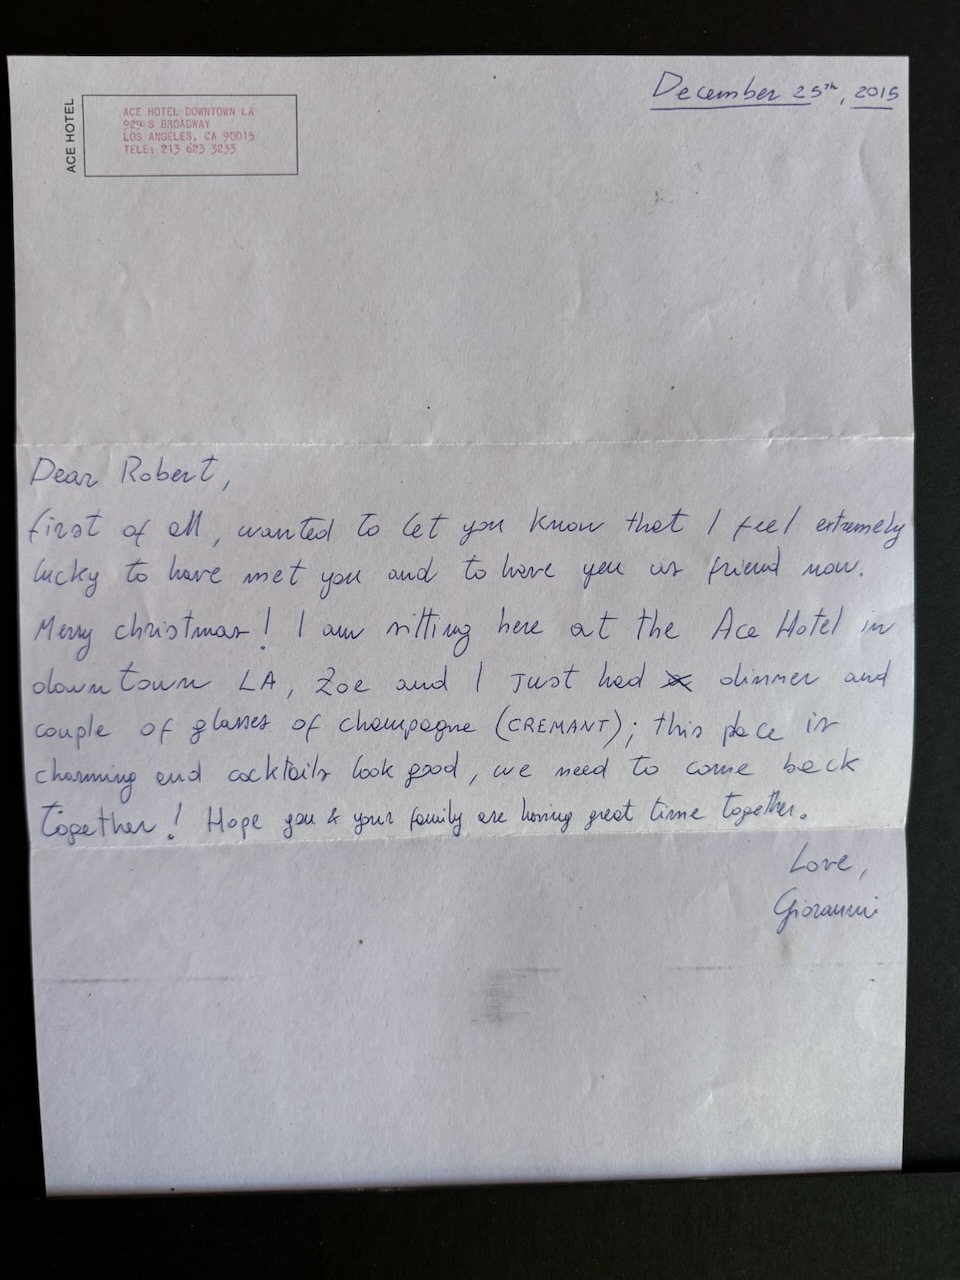 December 25th, 2015
ACE HOTEL
ACE HOTEL DOWNTOWN LA
929 S BROADWAY
LOS ANGELES, CA 90015
TELE: 213 623 3233
Dear Robert,
first of all, wanted to let you know that I feel extremely
lucky to have met you and to have you as friend now.
Merry christmas! I am sitting here at the Ace Hotel in
downtown LA, Zoe and I just had dinner and
couple of glasses of champagne (CREMANT); this place is
charming and cocktails look good, we need to come back
together! Hope you & your family are having great time together.
Love,
Giovanni